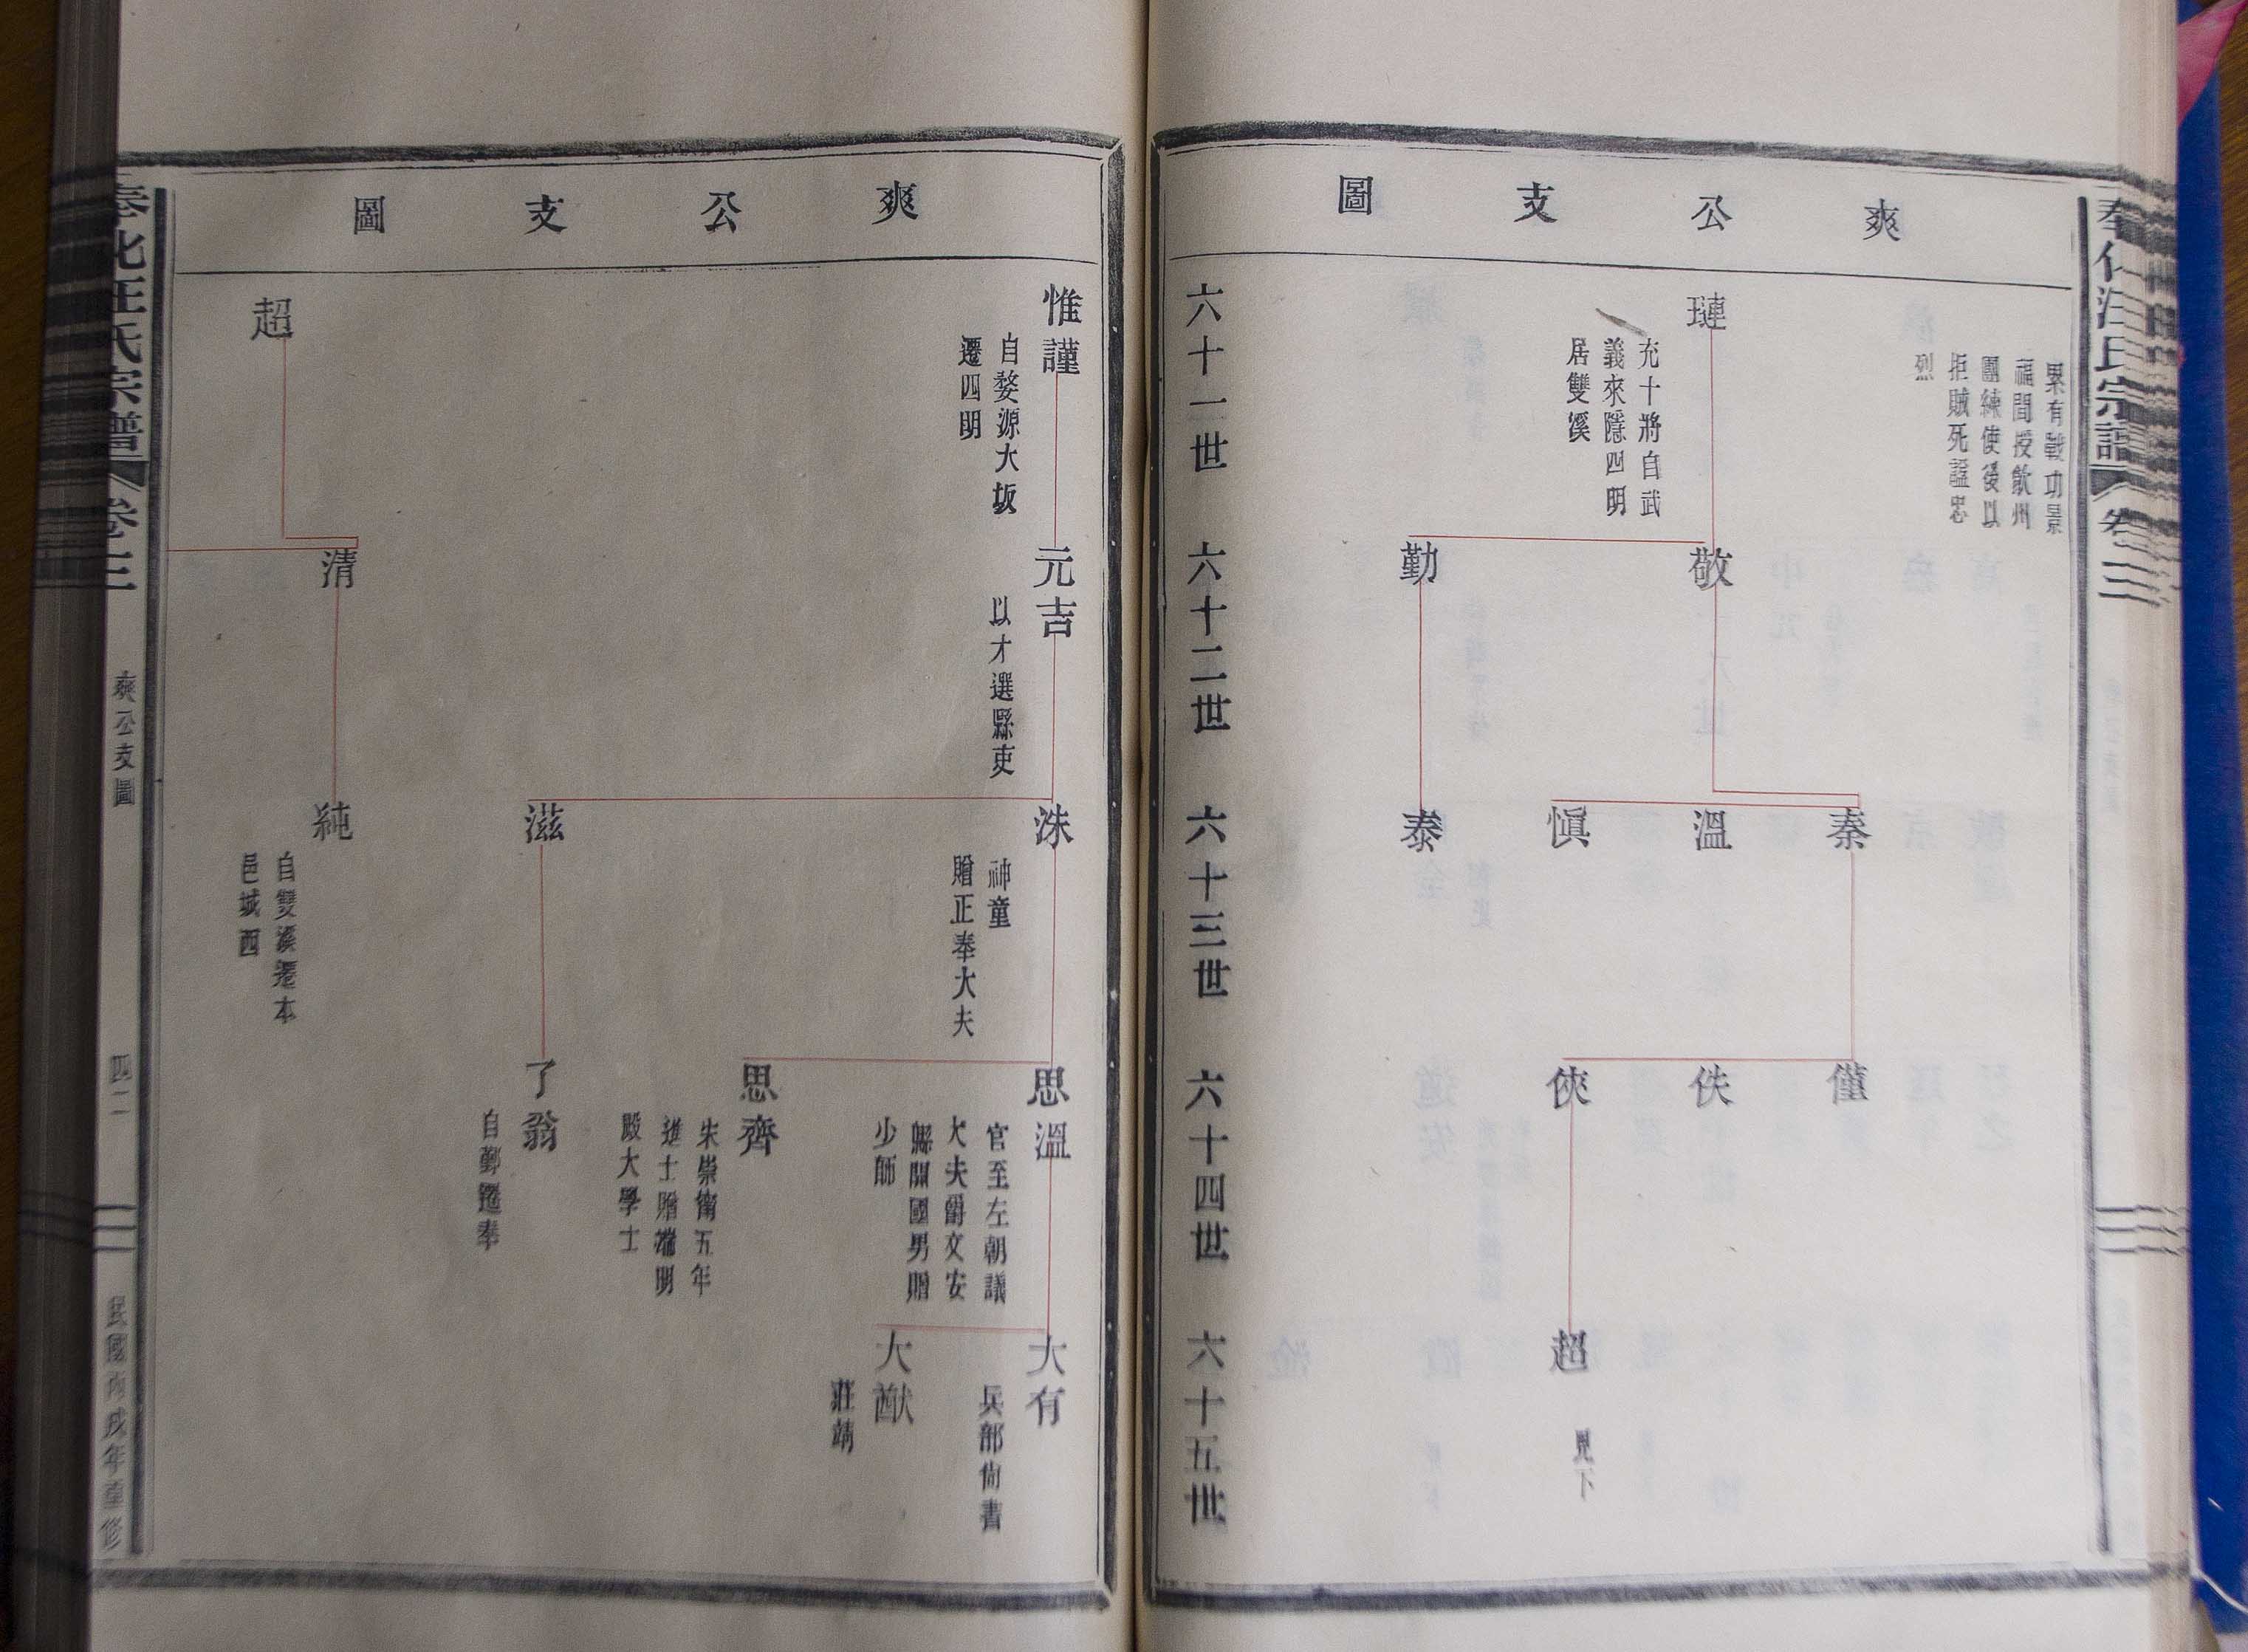 奉化汪氏宗譜
卷二
爽公支圖
累有戰功景
福間授歙州
團練使後以
拒賊死謚忠
烈
璉
充十將自武
義來隱四明
居雙溪
敬
勤
秦
溫
慎
泰
僅
佚
俠
超
見下
六十一世
六十二世
六十三世
六十四世
六十五世
爽公支圖
惟謹
自婺源大坂
遷四明
元吉
以才選縣吏
洙
神童
贈正奉大夫
滋
思溫
官至左朝議
大夫爵文安
縣開國男贈
少師
思齊
宋崇甯五年
進士贈端明
殿大學士
了翁
自鄞遷奉
大有
兵部尙書
大猷
莊靖
超
清
純
自雙溪遷本
邑城西
奉化汪氏宗譜
卷二
爽公支圖
四二
民國丙戌年重修